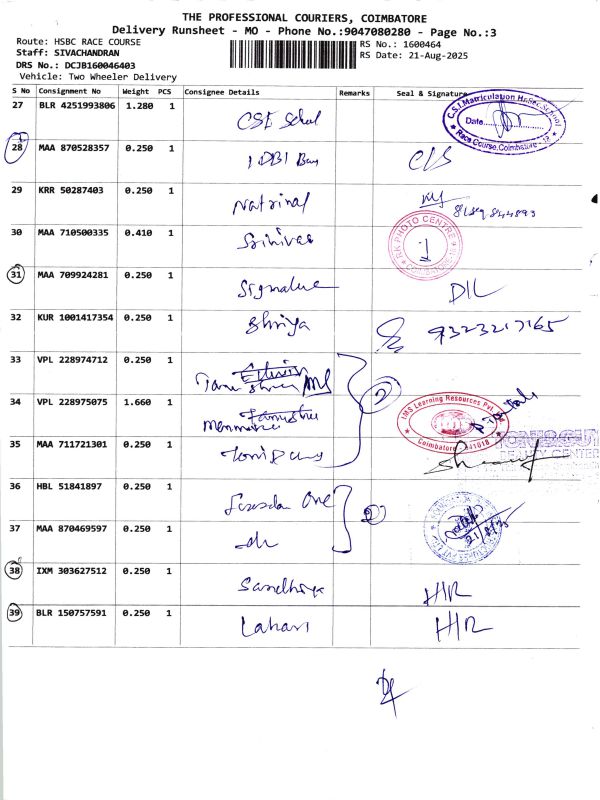 THE PROFESSIONAL COURIERS, COIMBATORE
Delivery Runsheet - MO - Phone No.:9047080280 - Page No.:3
Route: HSBC RACE COURSE
Staff: SIVACHANDRAN
DRS No.: DCJB160046403
Vehicle: Two Wheeler Delivery
RS No.: 1600464
RS Date: 21-Aug-2025
S No Consignment No Weight PCS Consignee Details Remarks Seal & Signature
27 BLR 4251993806 1.280 1
C.S.I. Matriculation Hr.Sec.School
Date
Race Course, Coimbatore - 18
28 MAA 870528357 0.250 1 IDBI
29 KRR 50287403 0.250 1 National
30 MAA 710500335 0.410 1 Srinivas
RK PHOTO CENTRE
1
31 MAA 709924281 0.250 1 Signature DIL
32 KUR 1001417354 0.250 1 Shriya 9323217165
33 VPL 228974712 0.250 1
34 VPL 228975075 1.660 1
IMS Learning Resources Pvt. Ltd.
Coimbatore
35 MAA 711721301 0.250 1
BEAUTY CENTER
36 HBL 51841897 0.250 1 One
37 MAA 870469597 0.250 1
38 IXM 303627512 0.250 1 Sandhiya H/R
39 BLR 150757591 0.250 1 Lahari H/R